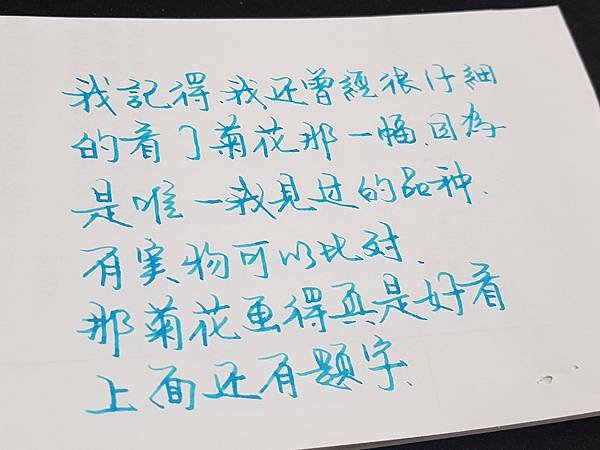 我記得、我还曾經很仔細
的看了菊花那一幅、因為
是唯一我見过的品种、
有实物可以比对、
那菊花画得真是好看
上面还有題字、